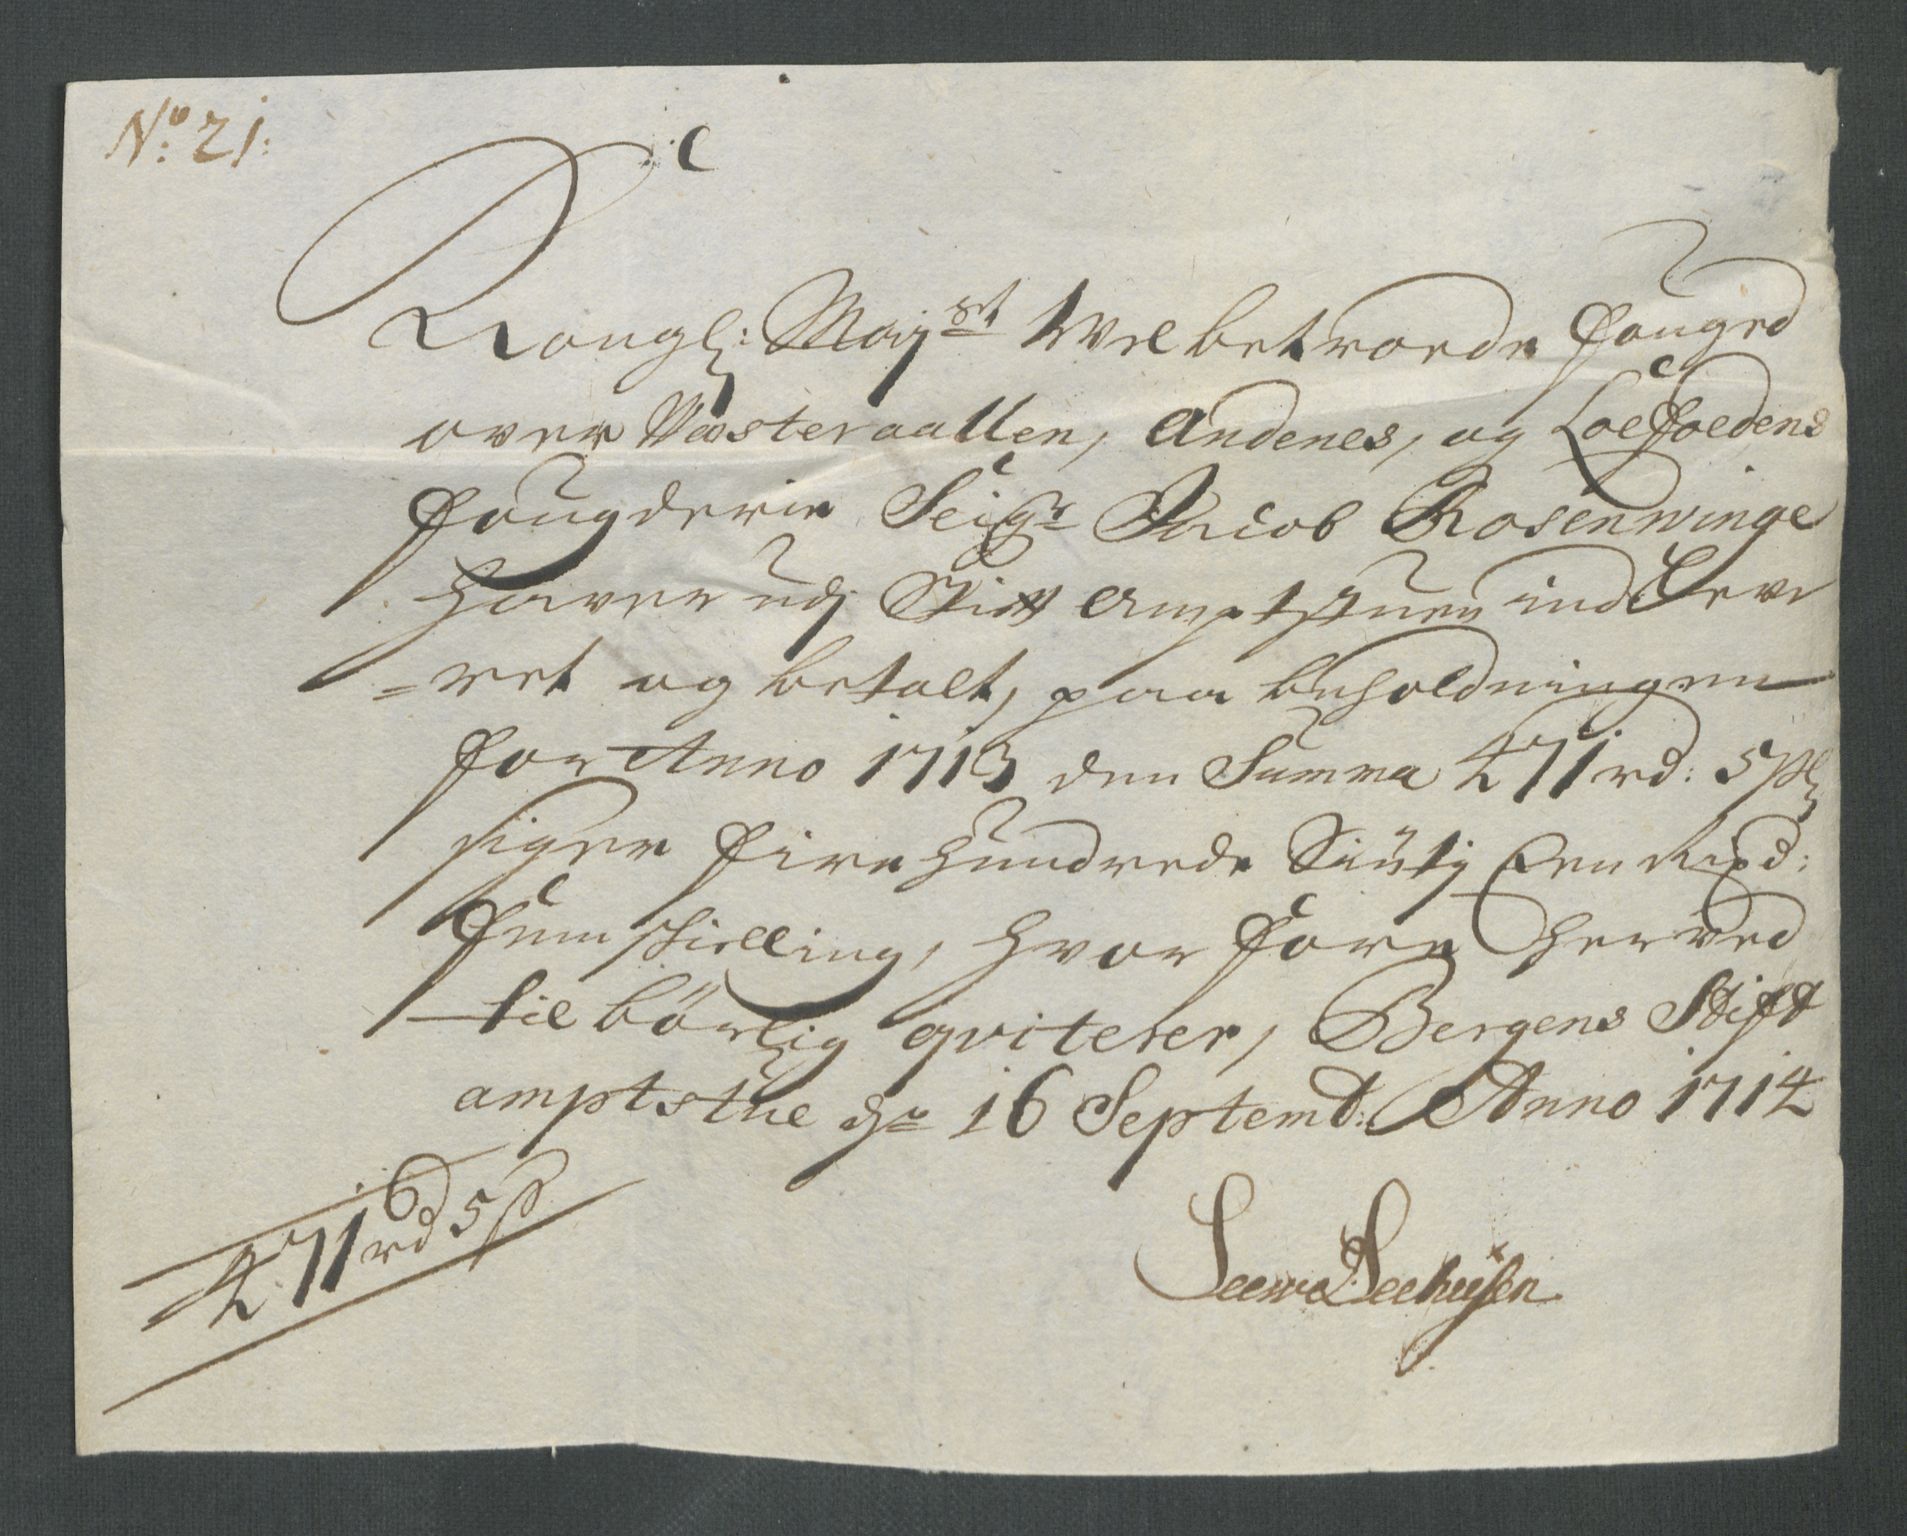 No: 21:
Kongl: Mayst Welbetroede fouged
over Westeraallen, Andenes, og Loefoedens
fougderie Seigr Jacob Rosenwinge
haver udj Stift Amptstuen ind Leve
=ret og betalt, paa beholdningen
for Anno 1713 den Summa 471 rd: 5 ſſ
siger fire hundrede Siutj Een Rixd:
fem skilling, hvor fore herved
tilbörlig qviterer, Bergens Stift
amptstue dn 16 Septemb: Anno 1714
471 rd 5 ß
Seewe Seehusen